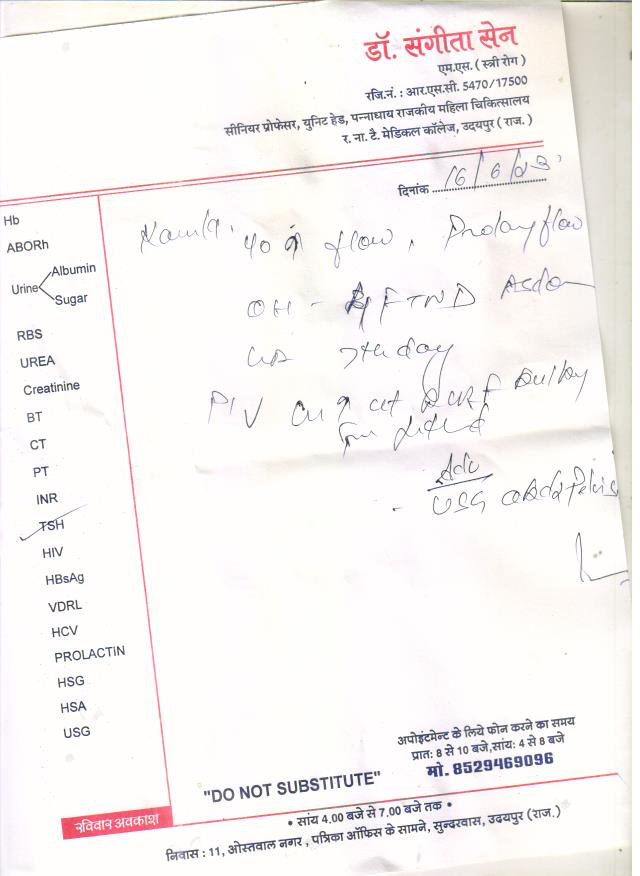 डॉ. संगीता सेन
एम.एस. ( स्त्री रोग )
रजि.नं. : आर.एस.सी. 5470/17500
सीनियर प्रोफेसर, यूनिट हेड, पन्नाधाय राजकीय महिला चिकित्सालय
र. ना. टै. मेडिकल कॉलेज, उदयपुर ( राज. )
दिनांक 16/6/23
Hb
ABORh
Urine Albumin
Sugar
RBS
UREA
Creatinine
BT
CT
PT
INR
TSH
HIV
HBsAg
VDRL
HCV
PROLACTIN
HSG
HSA
USG
Kamla. flow,
OH - FTND
7th day
P/V
Adv
- USG Pelvis
अपोइंटमेन्ट के लिये फोन करने का समय
प्रात: 8 से 10 बजे,सांय: 4 से 8 बजे
मो. 8529469096
"DO NOT SUBSTITUTE"
रविवार अवकाश
• सांय 4.00 बजे से 7.00 बजे तक •
निवास : 11, ओस्तवाल नगर , पत्रिका ऑफिस के सामने, सुन्दरवास, उदयपुर (राज.)